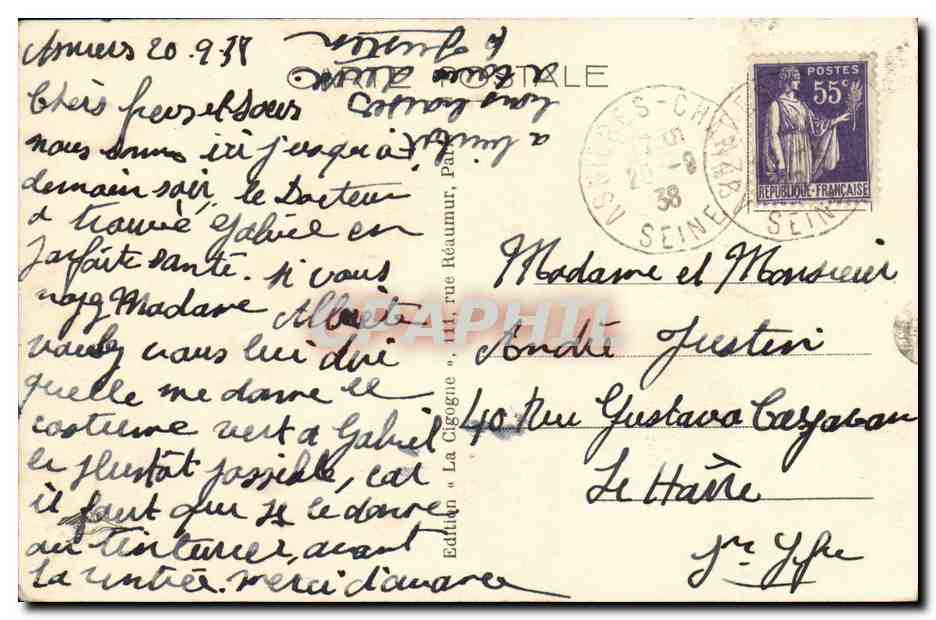 Asnieres 20.9.38
Chers frere et Soeur
nous somes ici jusqu'a
demain soir, le Docteur
a trouvé Gabriel en
parfaite santé. Si vous
Madame Alberte
voulez vous lui dire
quelle me donne le
costume vert a Gabriel
le plustot possible, car
il faut que je le donne
au tinturier, avant
la rentrée. merci d'avance
a bientot
bons baisers
a tous deux
CARTE POSTALE
Edition « La Cigogne », 111, rue Réaumur, Paris
ASNIERES-CH
20 -9
38
SEINE
SEINE
POSTES
55c
REPUBLIQUE-FRANÇAISE
Madame et Monsieur
André Justin
40 Rue Gustave Cazavan
Le Havre
Sne Yfre
CPAPHIL